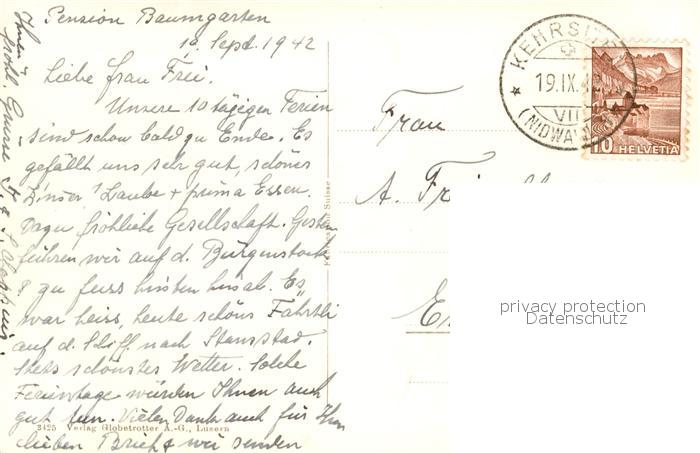 Pension Baumgarten
19. Sept. 1942
Liebe Frau Frei.
Unsere 10 tägigen Ferien
sind schon bald zu Ende. Es
gefällt uns sehr gut, schönes
Laube + prima Essen.
Dazu fröhliche Gesellschaft. Gestern
fuhren wir auf d. Bürgenstock
& zu fuss hinab. Es
war heiss, heute schöns Fahrtli
auf d. Schiff nach Stansstad.
Stets schönstes Wetter. Solche
Ferientage würden Ihnen auch
gut tun. Vielen Dank auch für Ihren
lieben Brief & wir senden
Ihnen
Grüsse
3425 Verlag Globetrotter A.-G., Luzern
Suisse
Frau
A.
KEHRSIT
19.IX.42
VII
(NIDWAL
10 HELVETIA
privacy protection
Datenschutz